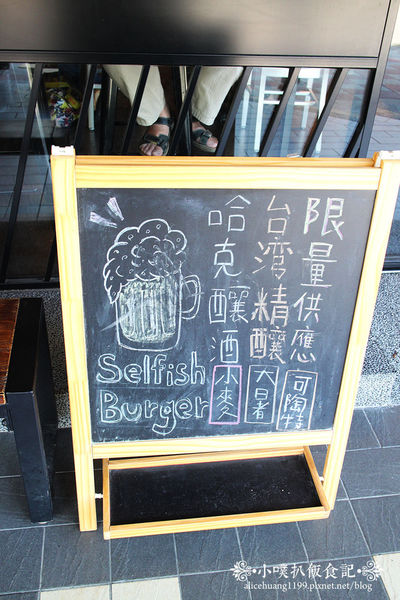 限量供應 可陶特
台湾精釀 大日者
哈克釀酒 小麥
Selfish
Burger
小噗扒飯食記
alicehuang1199.pixnet.net/blog